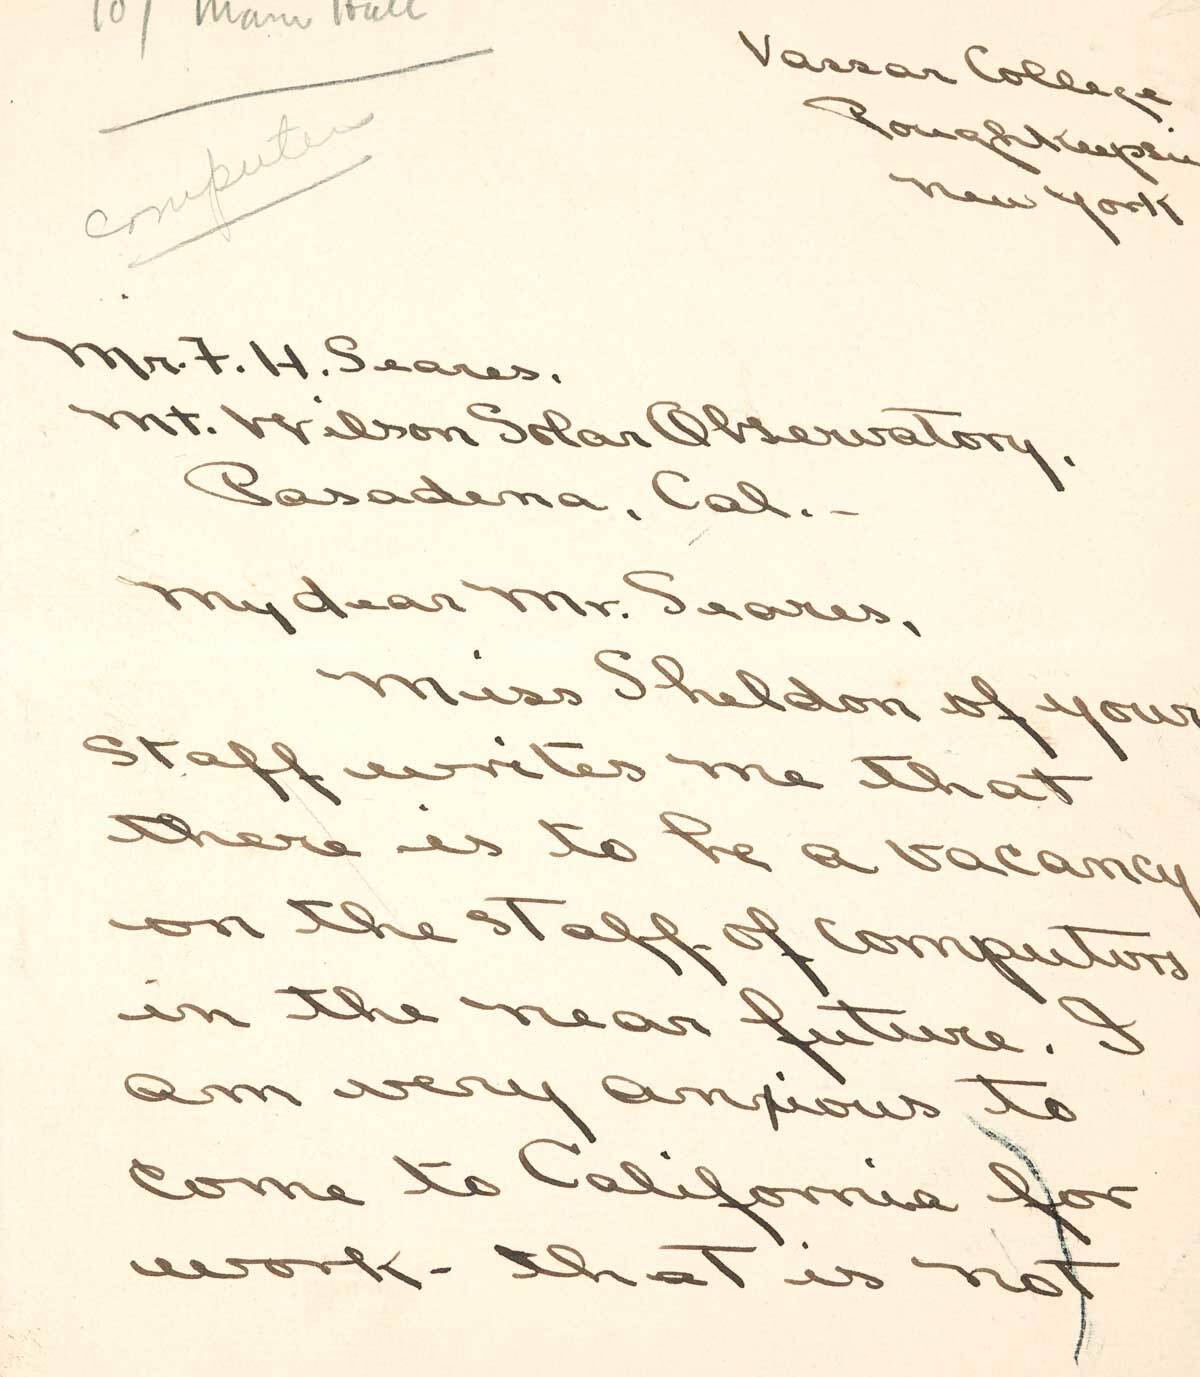 107 Main Hall
Vassar College
Poughkeepsie
New York
computer
Mr. F. H. Seares.
Mt. Wilson Solar Observatory.
Pasadena, Cal. -
My dear Mr. Seares,
Miss Sheldon of your
staff writes me that
there is to be a vacancy
on the staff of computors
in the near future. I
am very anxious to
come to California for
work - that is not